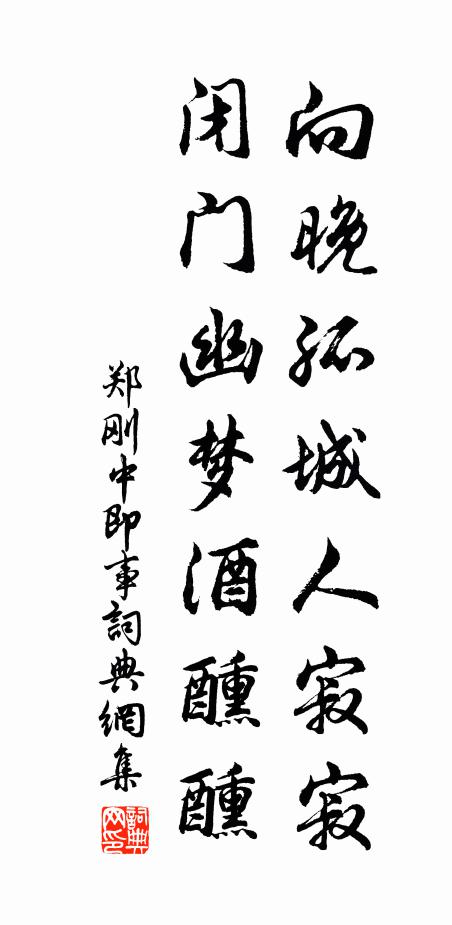 向晚孤城人寂寂
闭门幽梦酒醺醺
郑刚中即事詞典網集
詞典网印